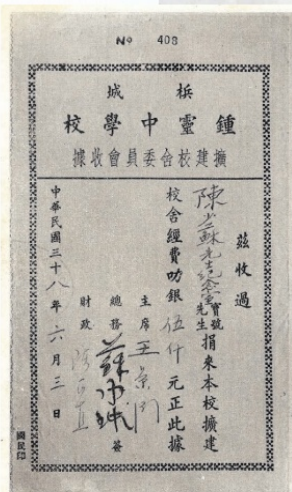 Nº 408
檳城
鍾靈中學校
擴建校舍委員會收據
茲收過
陳
寶號
先生
捐來本校擴建
校舍經費叻銀伍仟元正此據
主席
總務
財政
簽
中華民國三十八年六月三日
國民印